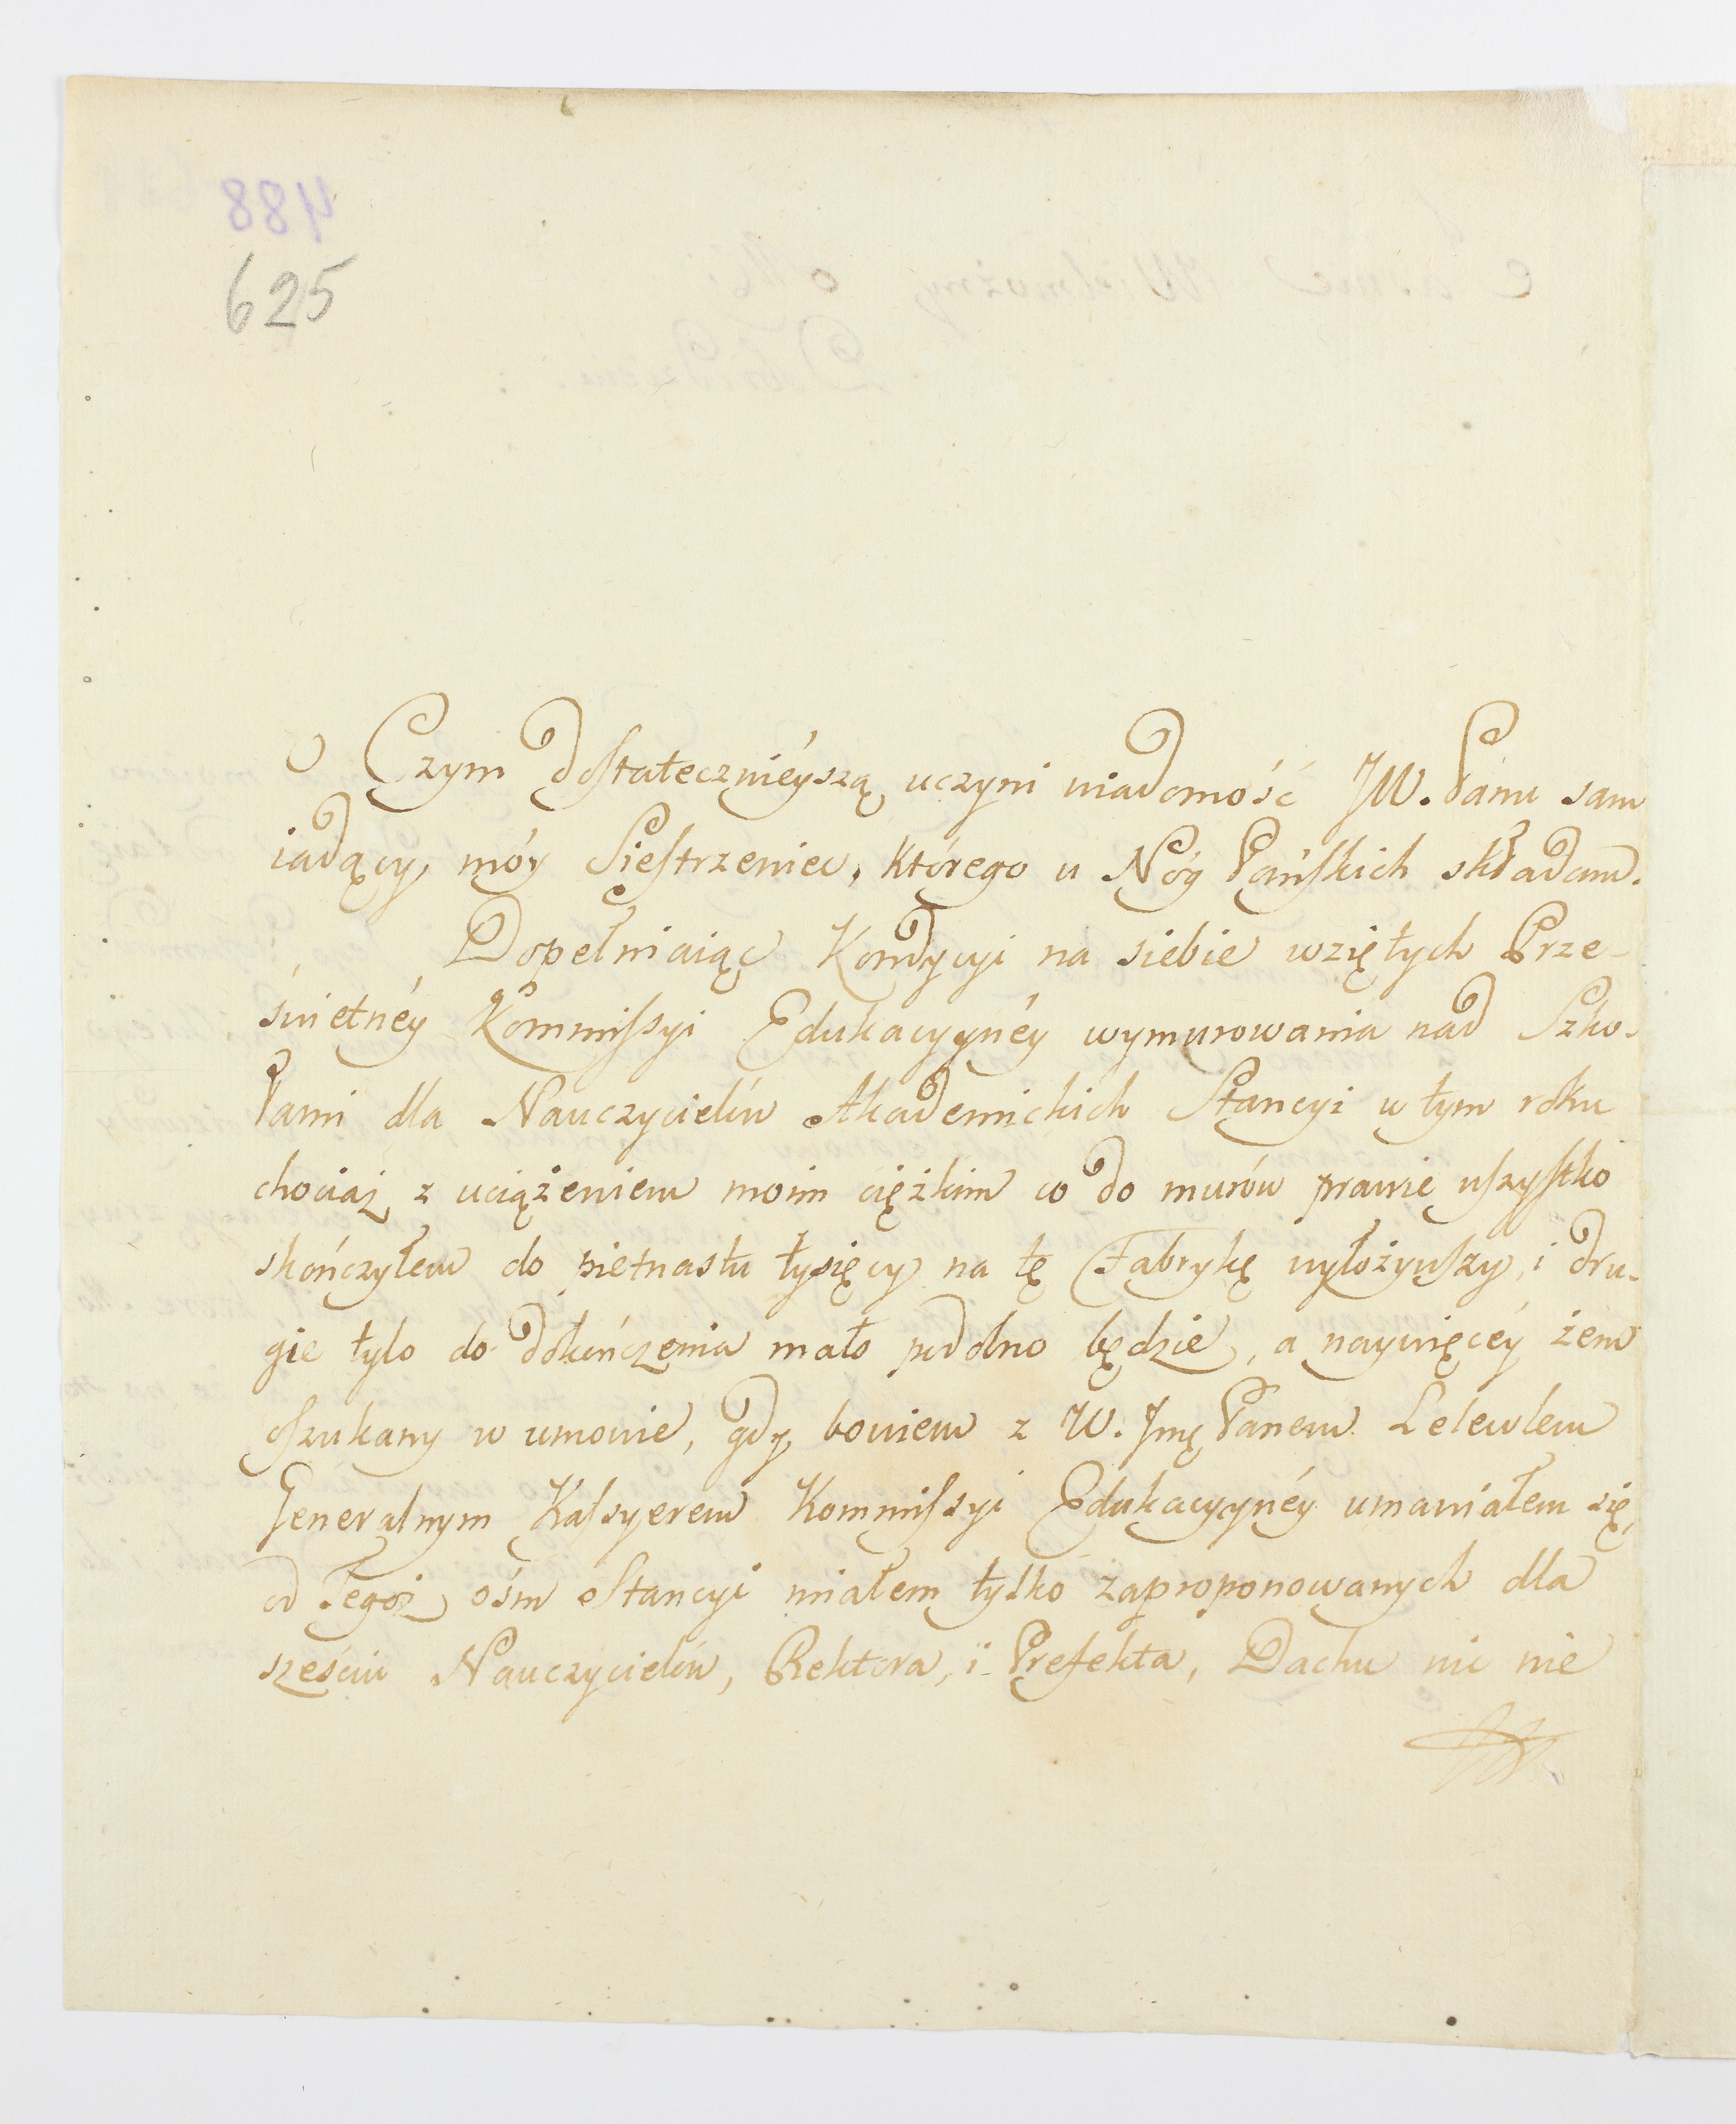 488
625
O Czym dostatecznieyszą uczyni wiadomość JW. Panu sam
iadący móy Siestrzeniec, którego u Nóg Pańskich składam.
Dopełniaiąc Kondycyi na siebie wziętych Prze-
świetnéy Kommissyi Edukacyynéy wymurowania nad Szko-
łami dla Nauczycielów Akademickich Stancyi w tym roku
chociaż z uciążeniem moim ciężkim co do murów prawie wszystko
skończyłem do pietnastu tysięcy na tę Fabrykę wyłożywszy, i dru-
gie tylo do dokończenia mało podobno będzie, a naywięcéy żem
oszukany w umowie, gdy bowiem z W. Jmę Panem Lelewlem
Generalnym Kassyerem Kommissyi Edukacyynéy umawiałem się,
od Tegoż ośm Stancyi miałem tylko zaproponowanych dla
sześciu Nauczycielów, Rektora, i Prefekta, Dachu nic nie